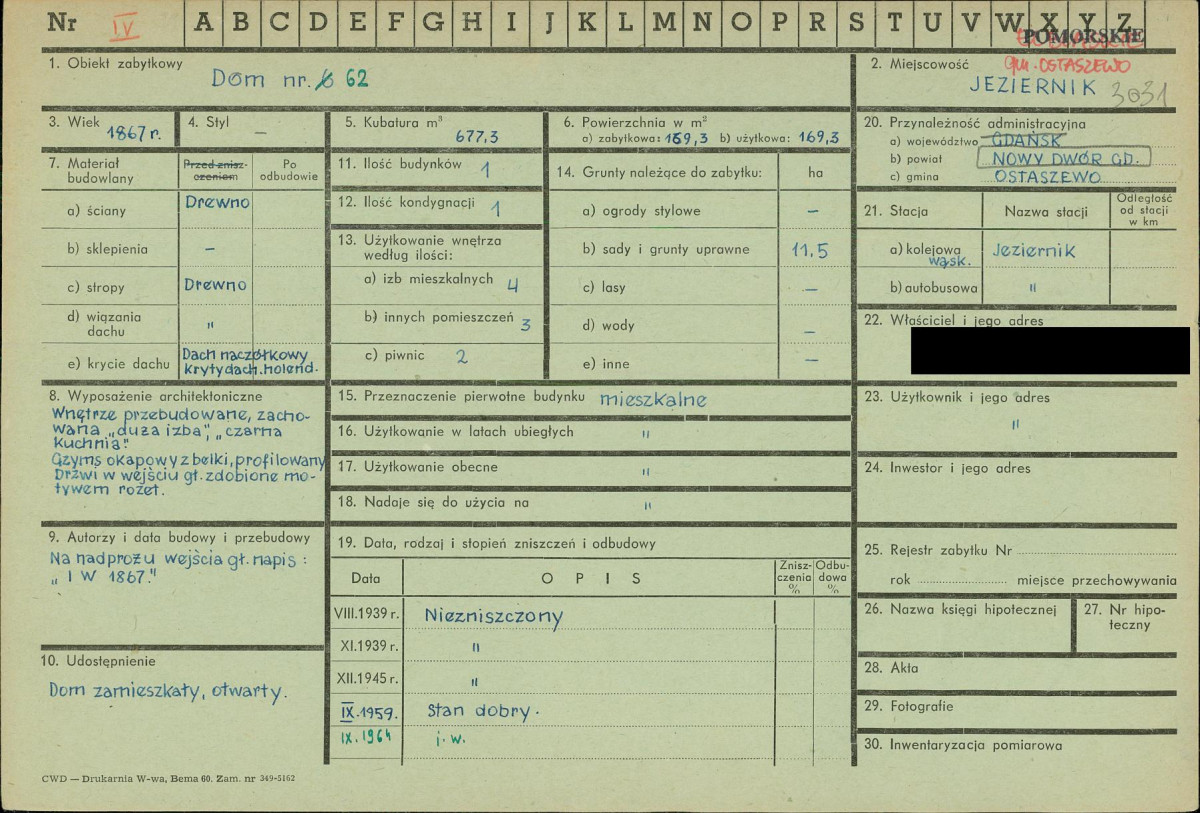 Nr IV A B C D E F G H I J K L M N O P R S T U V W X Y Z
POMORSKIE
1. Obiekt zabytkowy
Dom nr. 62
2. Miejscowość
gm. OSTASZEWO
JEZIERNIK 3031
3. Wiek
1867 r.
4. Styl
—
5. Kubatura m³
677,3
6. Powierzchnia w m²
a) zabytkowa: 169,3 b) użytkowa: 169,3
20. Przynależność administracyjna
a) województwo GDAŃSK
b) powiat NOWY DWÓR GD.
c) gmina OSTASZEWO
7. Materiał budowlany
Przed znisz-
czeniem
Po
odbudowie
a) ściany Drewno
b) sklepienia –
c) stropy Drewno
d) wiązania
dachu "
e) krycie dachu Dach naczółkowy
kryty dach. holend.
11. Ilość budynków 1
12. Ilość kondygnacji 1
13. Użytkowanie wnętrza
według ilości:
a) izb mieszkalnych 4
b) innych pomieszczeń 3
c) piwnic 2
14. Grunty należące do zabytku: ha
a) ogrody stylowe –
b) sady i grunty uprawne 11,5
c) lasy –
d) wody –
e) inne –
21. Stacja Nazwa stacji Odległość
od stacji
w km
a) kolejowa Jeziernik
wąsk.
b) autobusowa "
22. Właściciel i jego adres
8. Wyposażenie architektoniczne
Wnętrze przebudowane, zacho-
wana „duża izba", „czarna
kuchnia".
Gzyms okapowy z belki, profilowany
Drzwi w wejściu gł. zdobione mo-
tywem rozet.
15. Przeznaczenie pierwotne budynku mieszkalne
16. Użytkowanie w latach ubiegłych "
17. Użytkowanie obecne "
18. Nadaje się do użycia na "
23. Użytkownik i jego adres
"
24. Inwestor i jego adres
9. Autorzy i data budowy i przebudowy
Na nadprożu wejścia gł. napis:
„I W 1867."
10. Udostępnienie
Dom zamieszkały, otwarty.
19. Data, rodzaj i stopień zniszczeń i odbudowy
Data OPIS Znisz-
czenia
%
Odbu-
dowa
%
VIII.1939 r. Niezniszczony
XI.1939 r. "
XII.1945 r. "
IX.1959. Stan dobry.
IX.1964 j.w.
25. Rejestr zabytku Nr
rok miejsce przechowywania
26. Nazwa księgi hipotecznej
27. Nr hipo-
teczny
28. Akta
29. Fotografie
30. Inwentaryzacja pomiarowa
CWD — Drukarnia W-wa, Bema 60. Zam. nr 349-5162